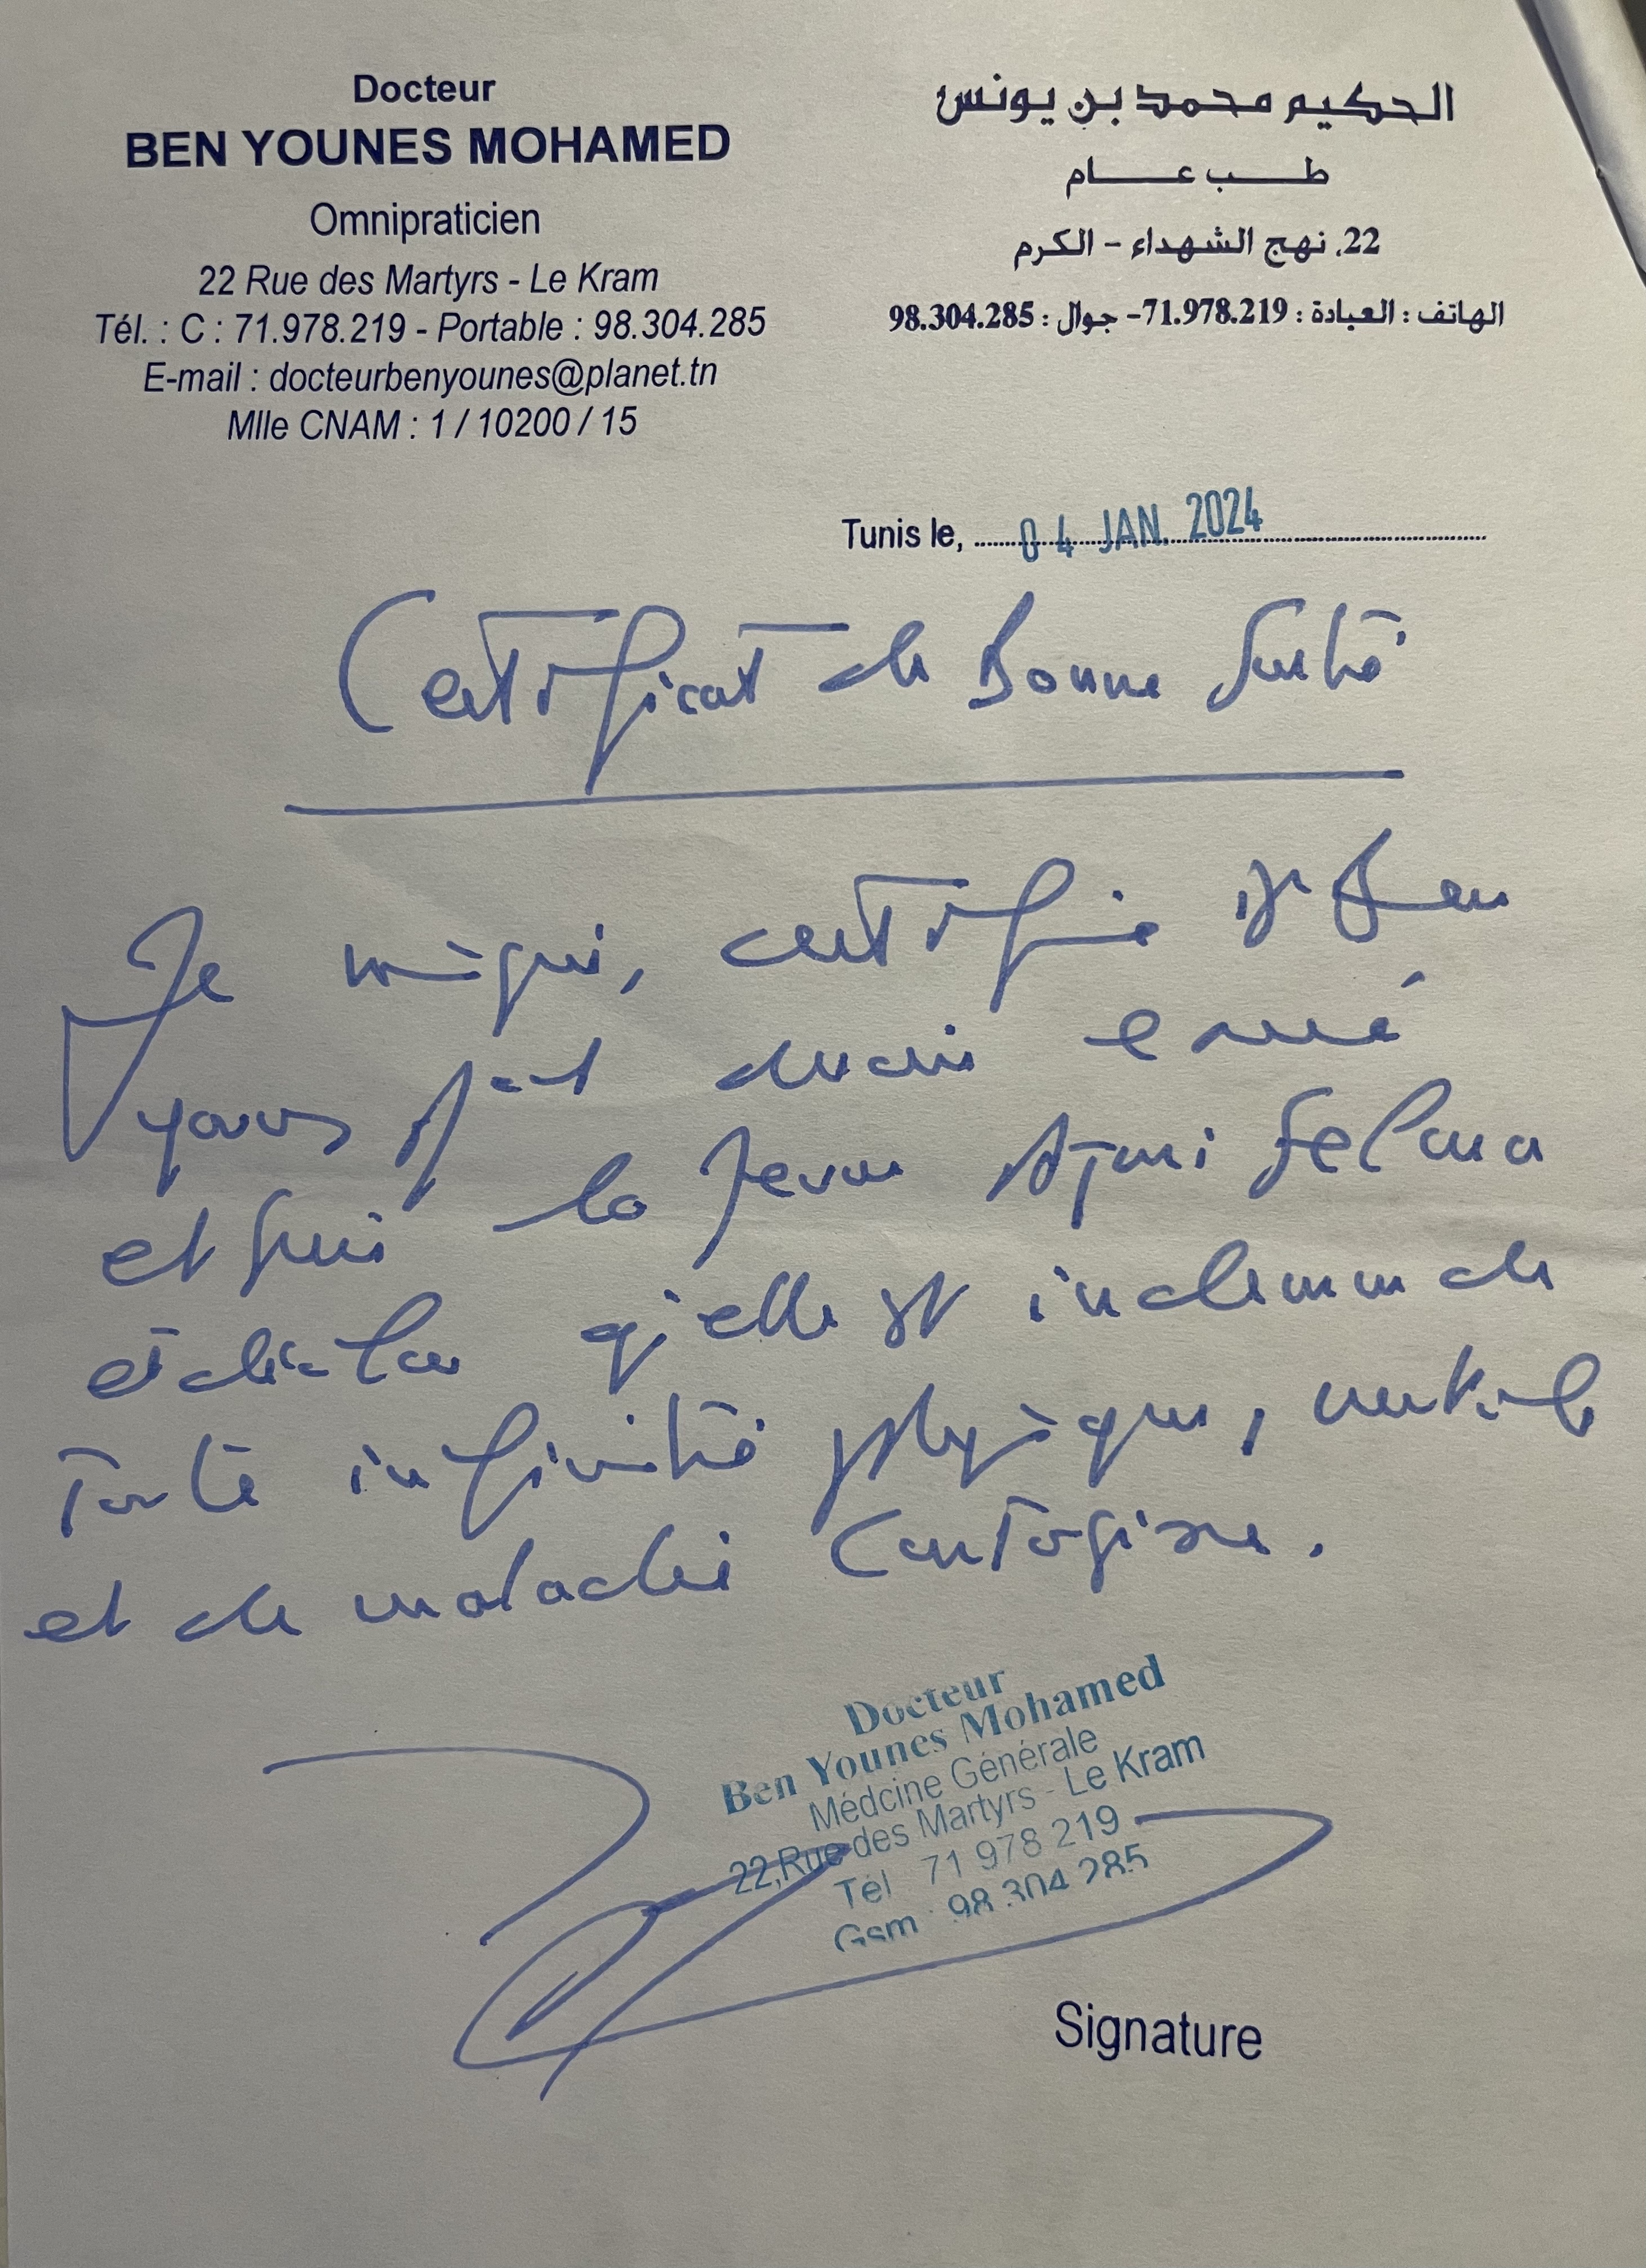 Docteur
BEN YOUNES MOHAMED
Omnipraticien
22 Rue des Martyrs - Le Kram
Tél. : C : 71.978.219 - Portable : 98.304.285
E-mail : docteurbenyounes@planet.tn
Mlle CNAM : 1 / 10200 / 15
الحكيم محمد بن يونس
طب عام
22, نهج الشهداء - الكرم
الهاتف : العيادة : 71.978.219- جوال : 98.304.285
Tunis le, 04 JAN. 2024
Certificat de Bonne Santé
Je certifie Dr Ben
younes avoir examiné
et suivi la jeune Ajmi
et déclare qu'elle est indemne de
toute infirmité physique, mentale
et de maladie contagieuse.
Docteur
Ben Younes Mohamed
Médcine Générale
22,Rue des Martyrs - Le Kram
Tél 71 978 219
Gsm : 98 304 285
Signature